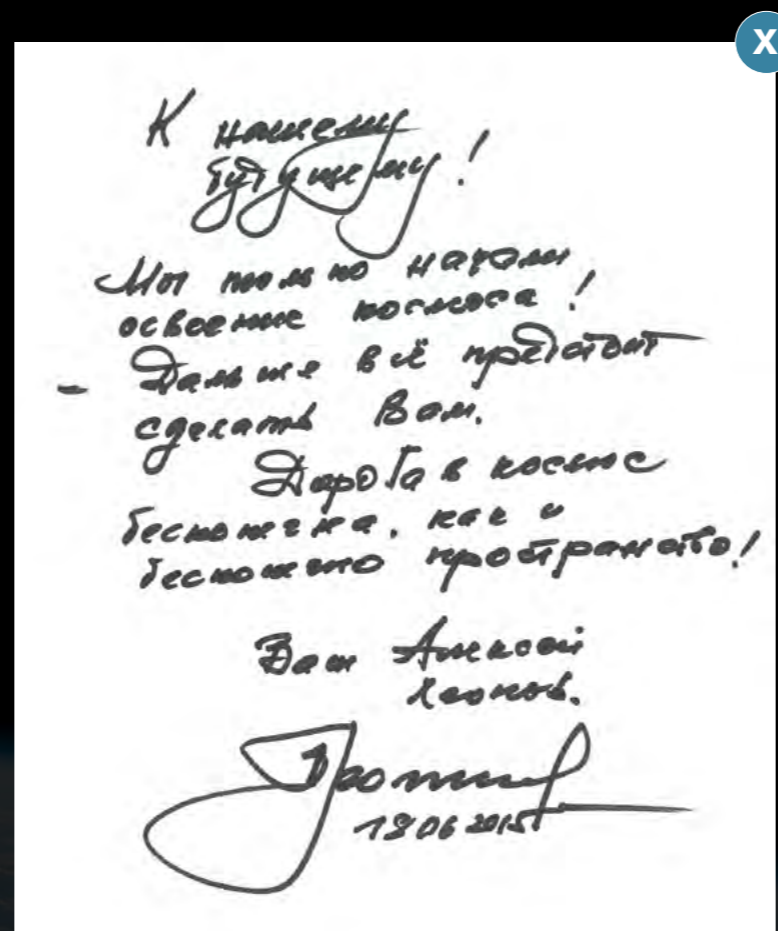 X
К нашему
будущему!
Мы только начали
освоение космоса!
- Дальше всё предстоит
сделать Вам.
Дорога в космос
бесконечна, как и
бесконечно пространство!
Ваш Алексей
Леонов.
Леонов
18 06 2015